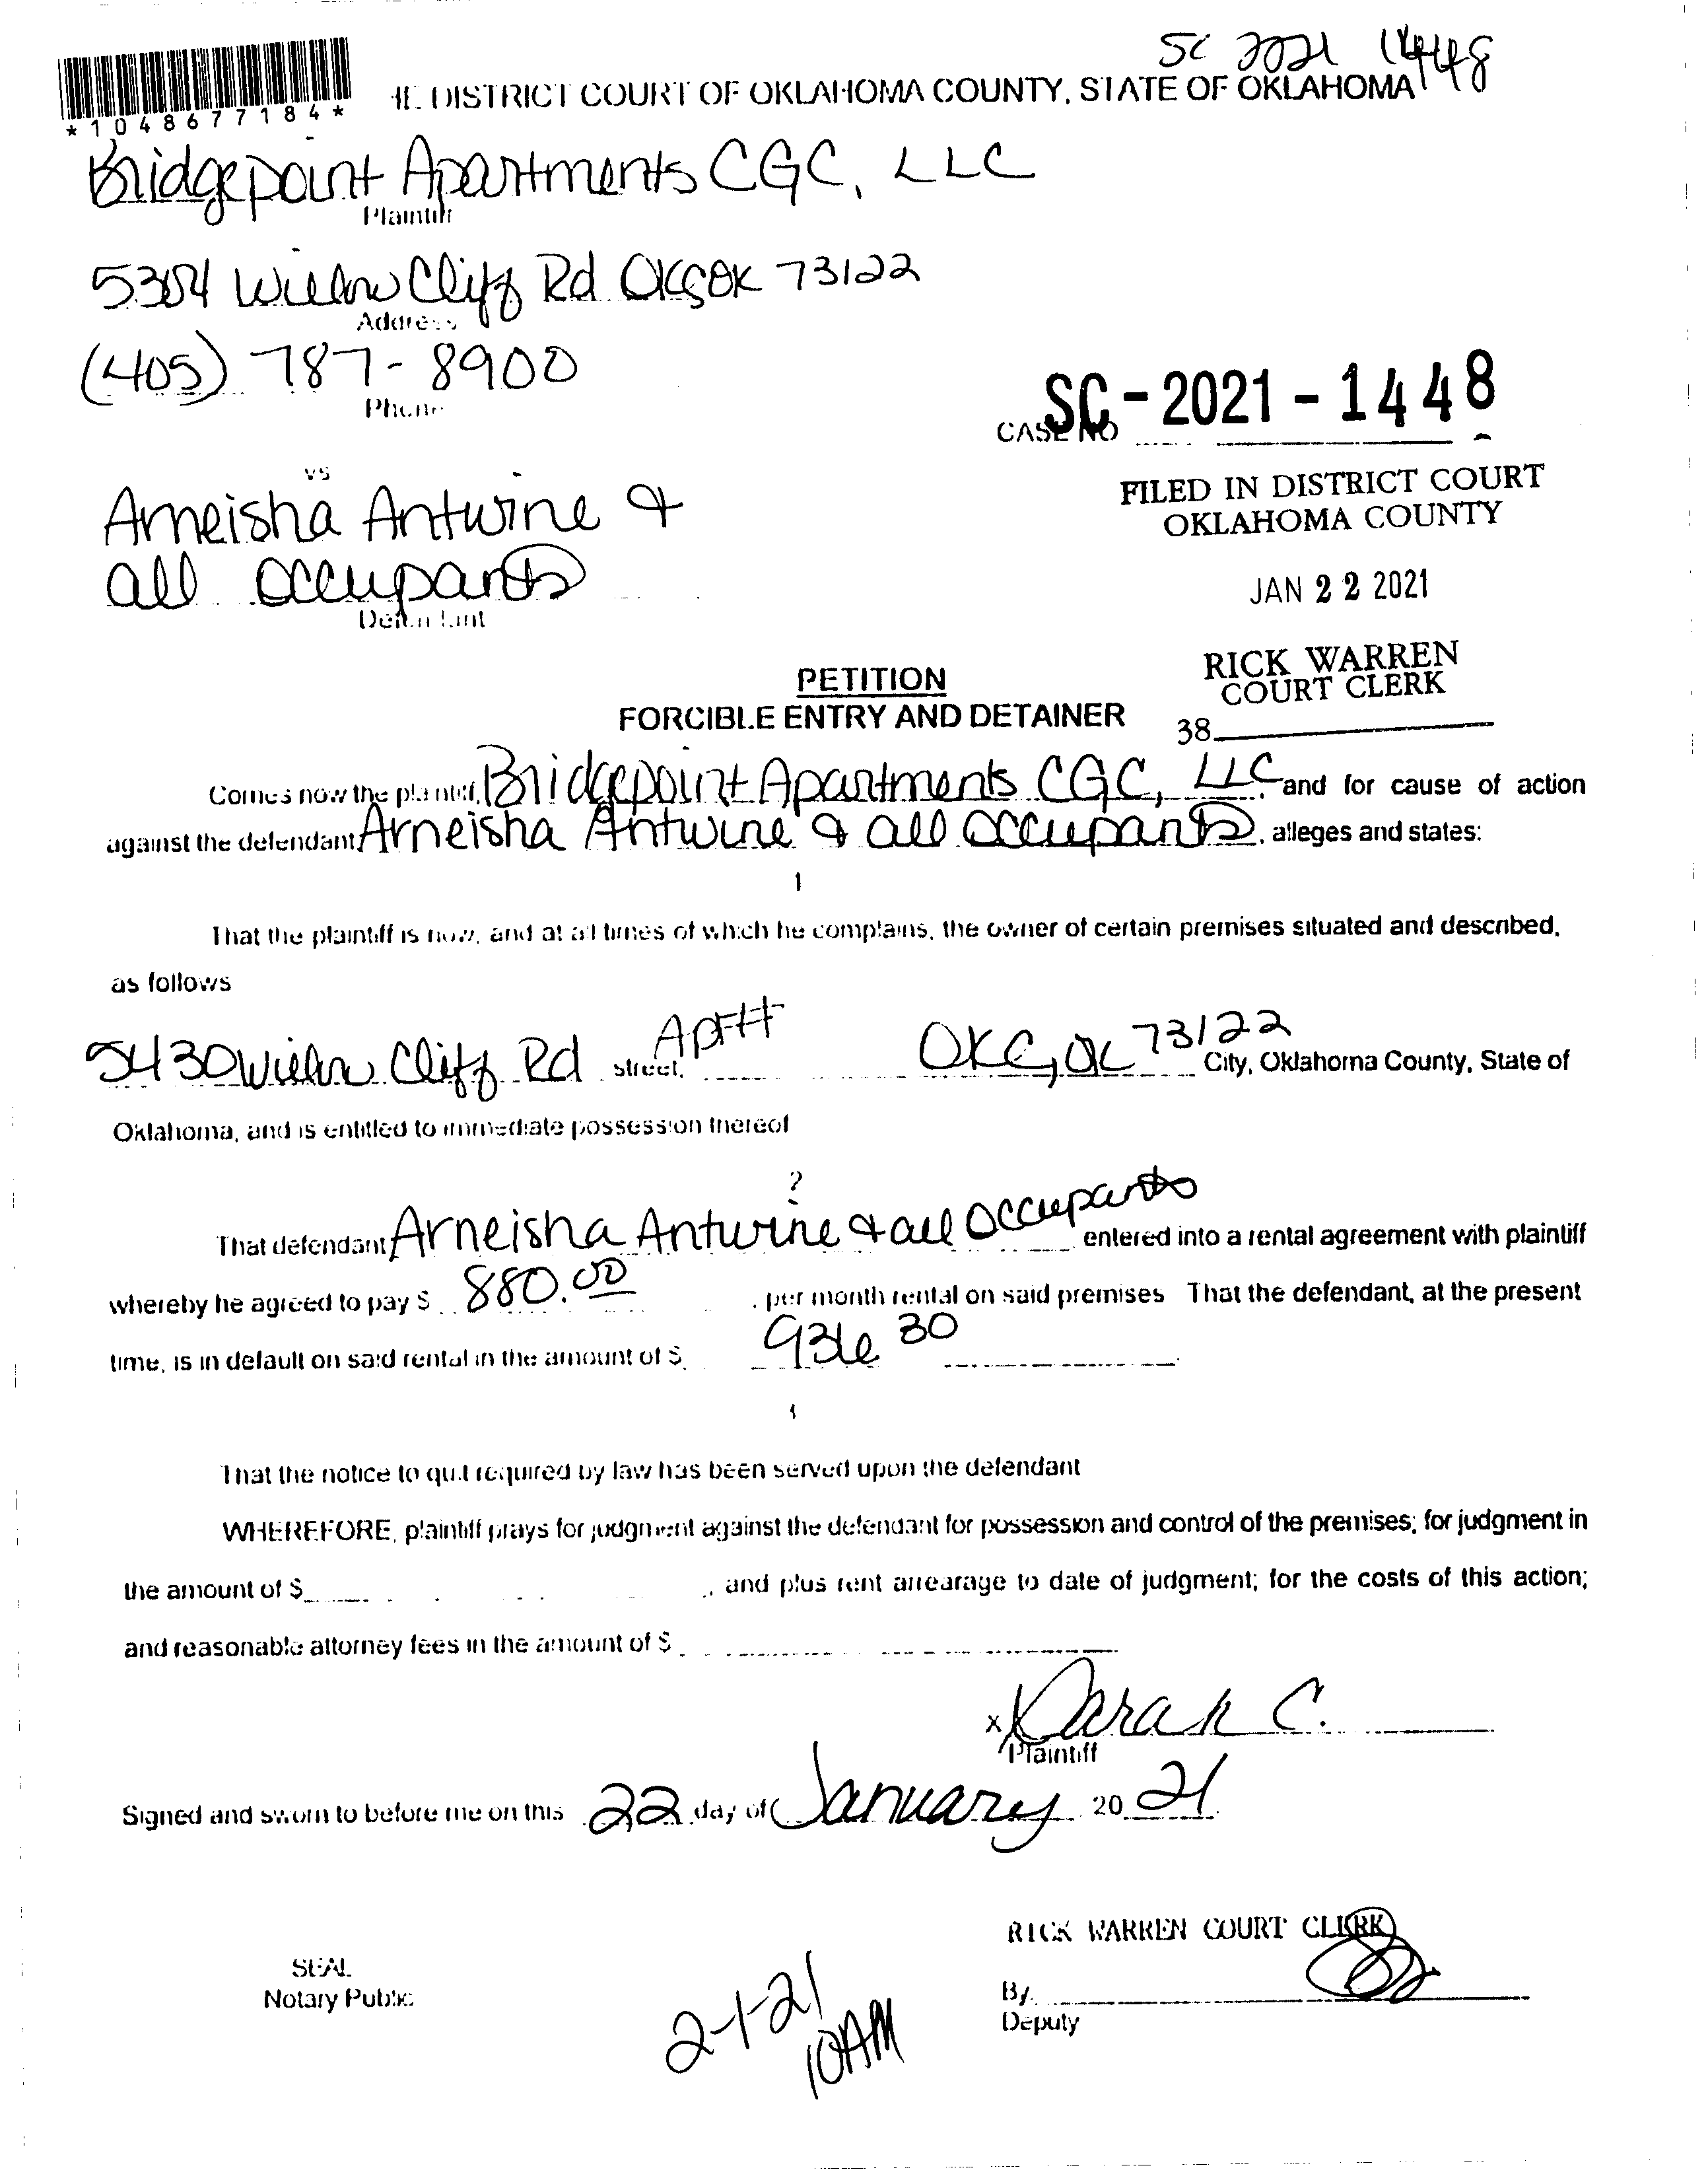 SC 2021 1448
*1048677184*
HE DISTRICT COURT OF OKLAHOMA COUNTY, STATE OF OKLAHOMA
Bridgepoint Apartments CGC, LLC
Plaintiff
5304 Willow Cliff Rd OKC OK 73122
Address
(405) 787-8900
Phone
CASE NO SC-2021-1448
vs
FILED IN DISTRICT COURT
OKLAHOMA COUNTY
Arneisha Antwine &
all occupants
Defendant
JAN 22 2021
RICK WARREN
COURT CLERK
38
PETITION
FORCIBLE ENTRY AND DETAINER
Comes now the plaintiff, Bridgepoint Apartments CGC, LLC and for cause of action
against the defendant Arneisha Antwine & all occupants, alleges and states:
1
That the plaintiff is now, and at all times of which he complains, the owner of certain premises situated and described,
as follows
5430 Willow Cliff Rd street, Apt# OKC, OK 73122 City, Oklahoma County, State of
Oklahoma, and is entitled to immediate possession thereof
2
That defendant Arneisha Antwine & all occupants entered into a rental agreement with plaintiff
whereby he agreed to pay $ 880.00, per month rental on said premises That the defendant, at the present
time, is in default on said rental in the amount of $ 936 30
That the notice to quit required by law has been served upon the defendant
WHEREFORE, plaintiff prays for judgment against the defendant for possession and control of the premises; for judgment in
the amount of $ , and plus rent arrearage to date of judgment; for the costs of this action;
and reasonable attorney fees in the amount of $
x Sarah C.
Plaintiff
Signed and sworn to before me on this 22 day of January 20 21
RICK WARREN COURT CLERK
SEAL
Notary Public
By
Deputy
2-1-21
10AM